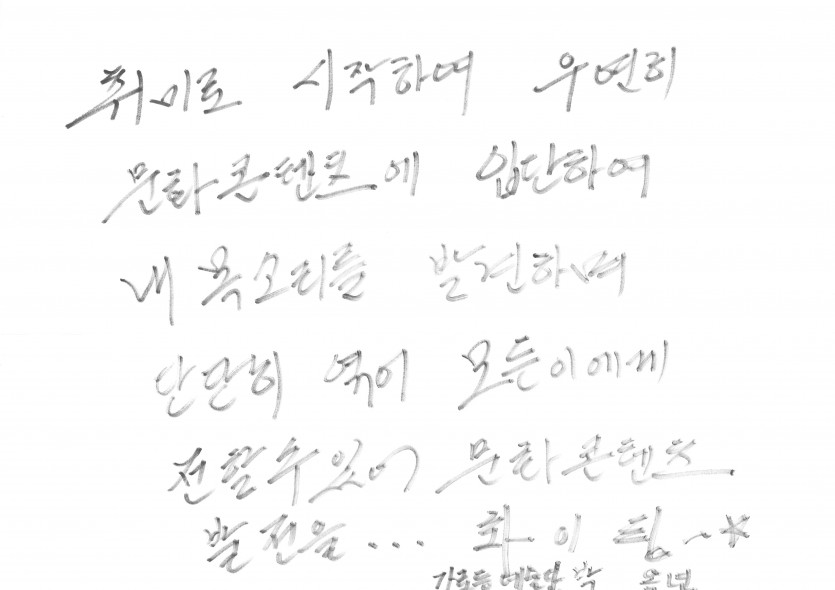 취미로 시작하여 우연히
문화콘텐츠에 입단하여
내 목소리를 발견하며
단단히 엮어 모든이에게
전할수있어 문화콘텐츠
발전을... 화이팅~*
박